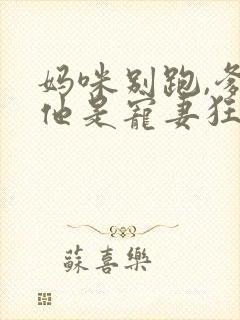 妈咪别跑,爹
他是寵妻狂
蘇喜樂